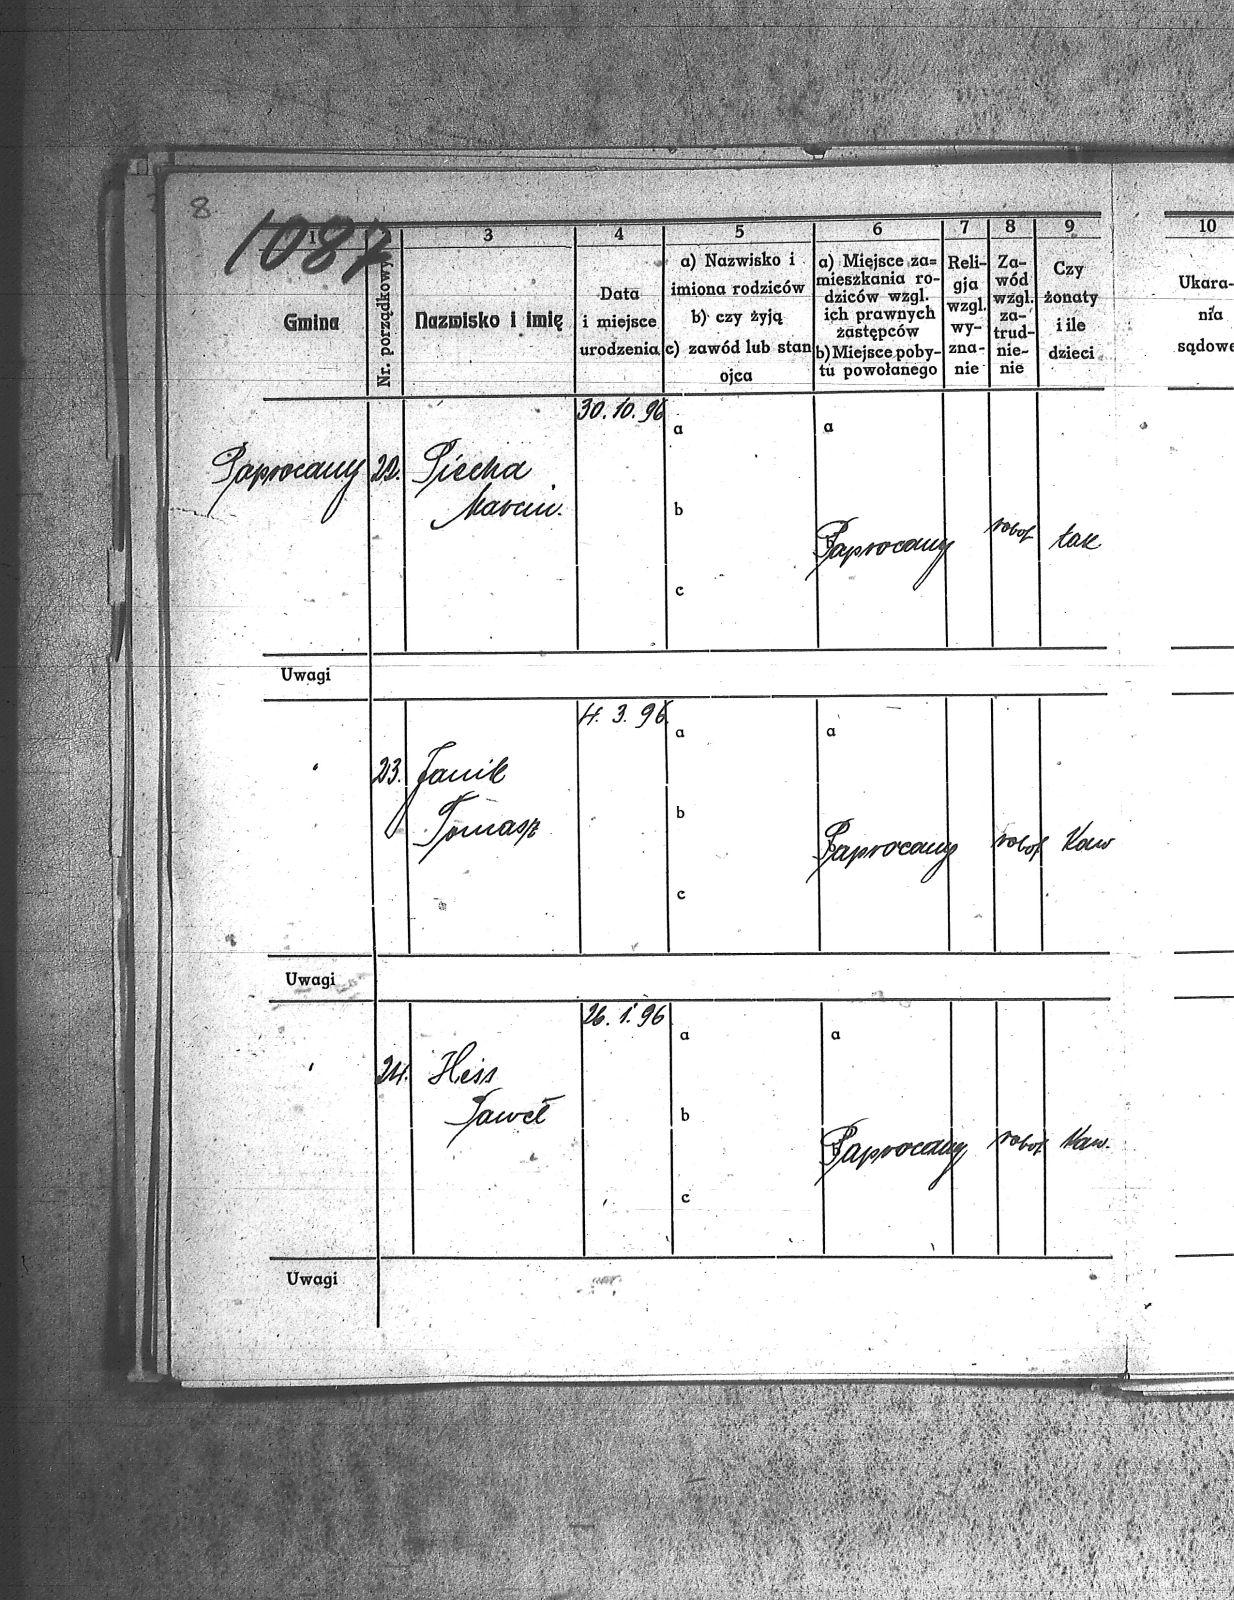 8
1087
1
3
4
5
6
7
8
9
10
Gmina
Nr. porządkowy
Nazwisko i imię
Data
i miejsce
urodzenia
a) Nazwisko i
imiona rodziców
b) czy żyją
c) zawód lub stan
ojca
a) Miejsce za=
mieszkania ro-
dziców wzgl.
ich prawnych
zastępców
b) Miejsce poby-
tu powołanego
Reli-
gja
wzgl.
wy-
zna-
nie
Za-
wód
wzgl.
za-
trud-
nie-
nie
Czy
żonaty
i ile
dzieci
Ukara-
nia
sądowe
30. 10. 96
a
a
Paprocany
22.
Piecha
Marcin.
b
b
Paprocany
robot
tak
c
Uwagi
4. 3. 96
a
a
23.
Janik
Tomasz
b
b
Paprocany
robot
Kaw
c
Uwagi
26. 1. 96
a
a
24.
Hess
Paweł
b
b
Paprocany
robot
Kaw.
c
Uwagi